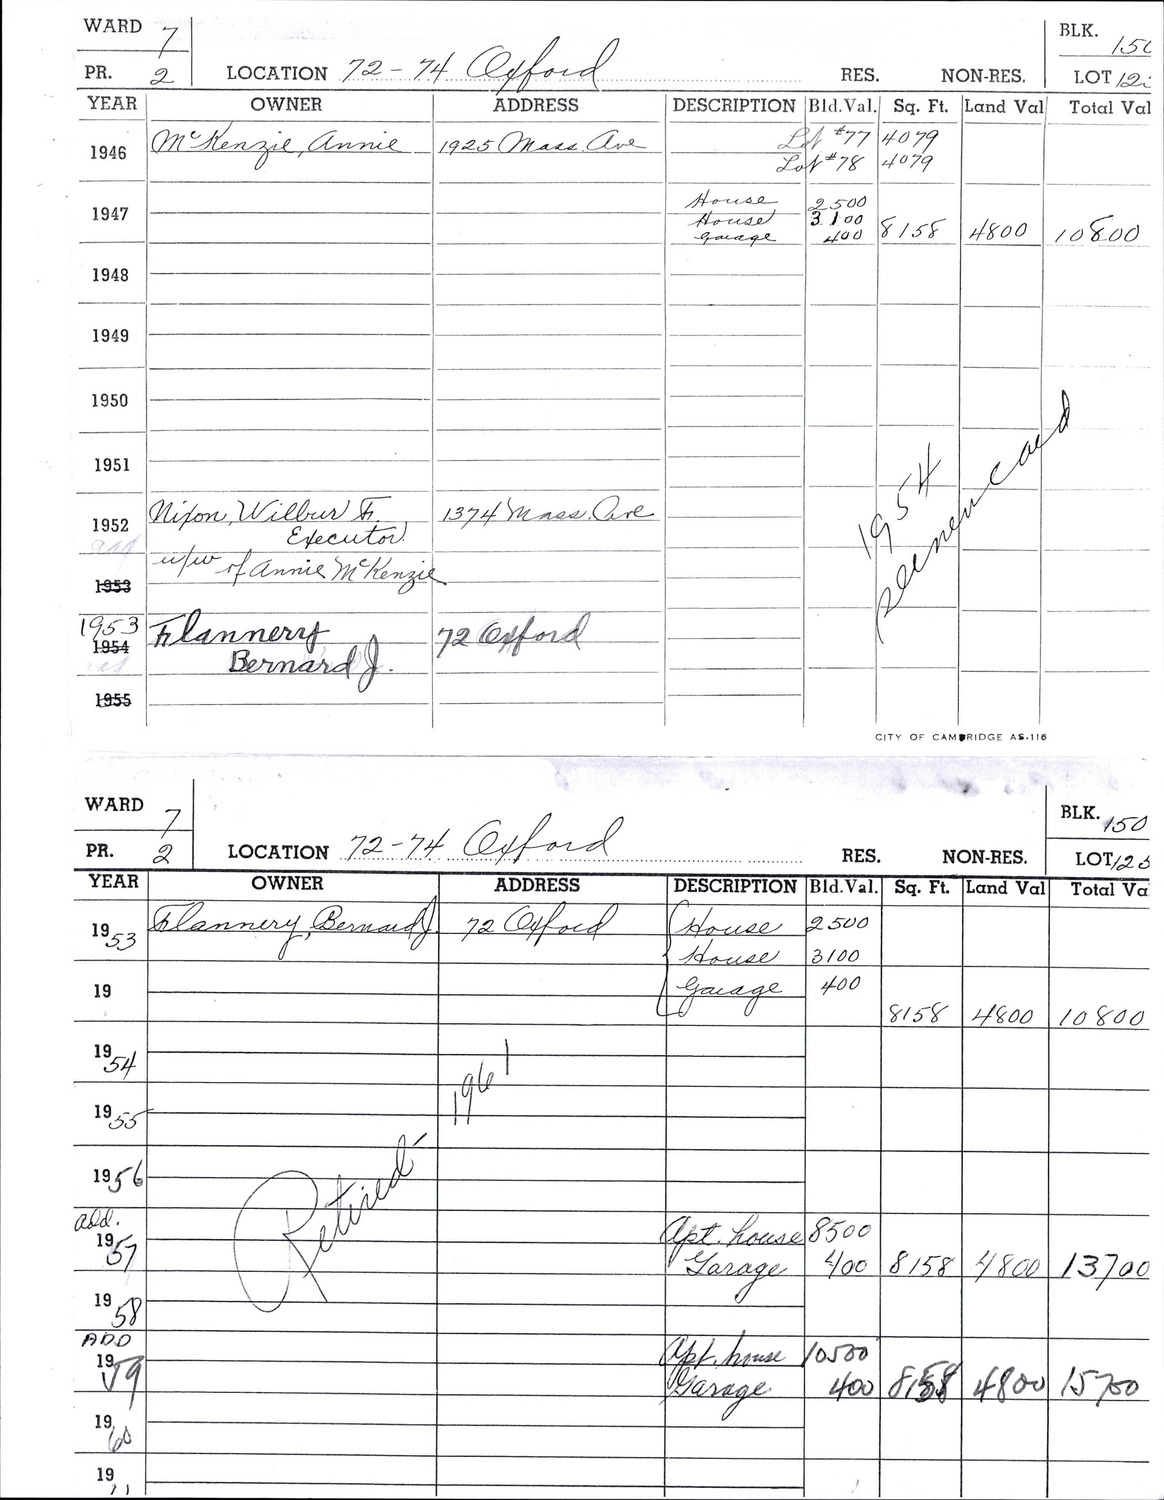 WARD 7 BLK. 150
PR. 2 LOCATION 72-74 Oxford RES. NON-RES. LOT
YEAR OWNER ADDRESS DESCRIPTION Bld.Val. Sq. Ft. Land Val Total Val
1946 McKenzie, Annie 1925 Mass. Ave Lot #77 4079
Lot #78 4079
House 2500
1947 House 3100
Garage 400 8158 4800 10800
1948
1949
1950
1951
1952 Nixon, Wilbur F. 1374 Mass. Ave
add Executor
u/w of Annie McKenzie
1953
1953
1954 Flannery 72 Oxford
Bernard J.
1955
1954
see new card
CITY OF CAMBRIDGE AS-116
WARD 7 BLK. 150
PR. 2 LOCATION 72-74 Oxford RES. NON-RES. LOT 125
YEAR OWNER ADDRESS DESCRIPTION Bld.Val. Sq. Ft. Land Val Total Va
1953 Flannery, Bernard J. 72 Oxford House 2500
House 3100
19 Garage 400
8158 4800 10800
1954
1961
1955
Retired
1956
add.
1957 Apt. house 8500
Garage 400 8158 4800 13700
1958
ADD
1959 Apt. house 10500
Garage 400 8158 4800 15700
1960
19